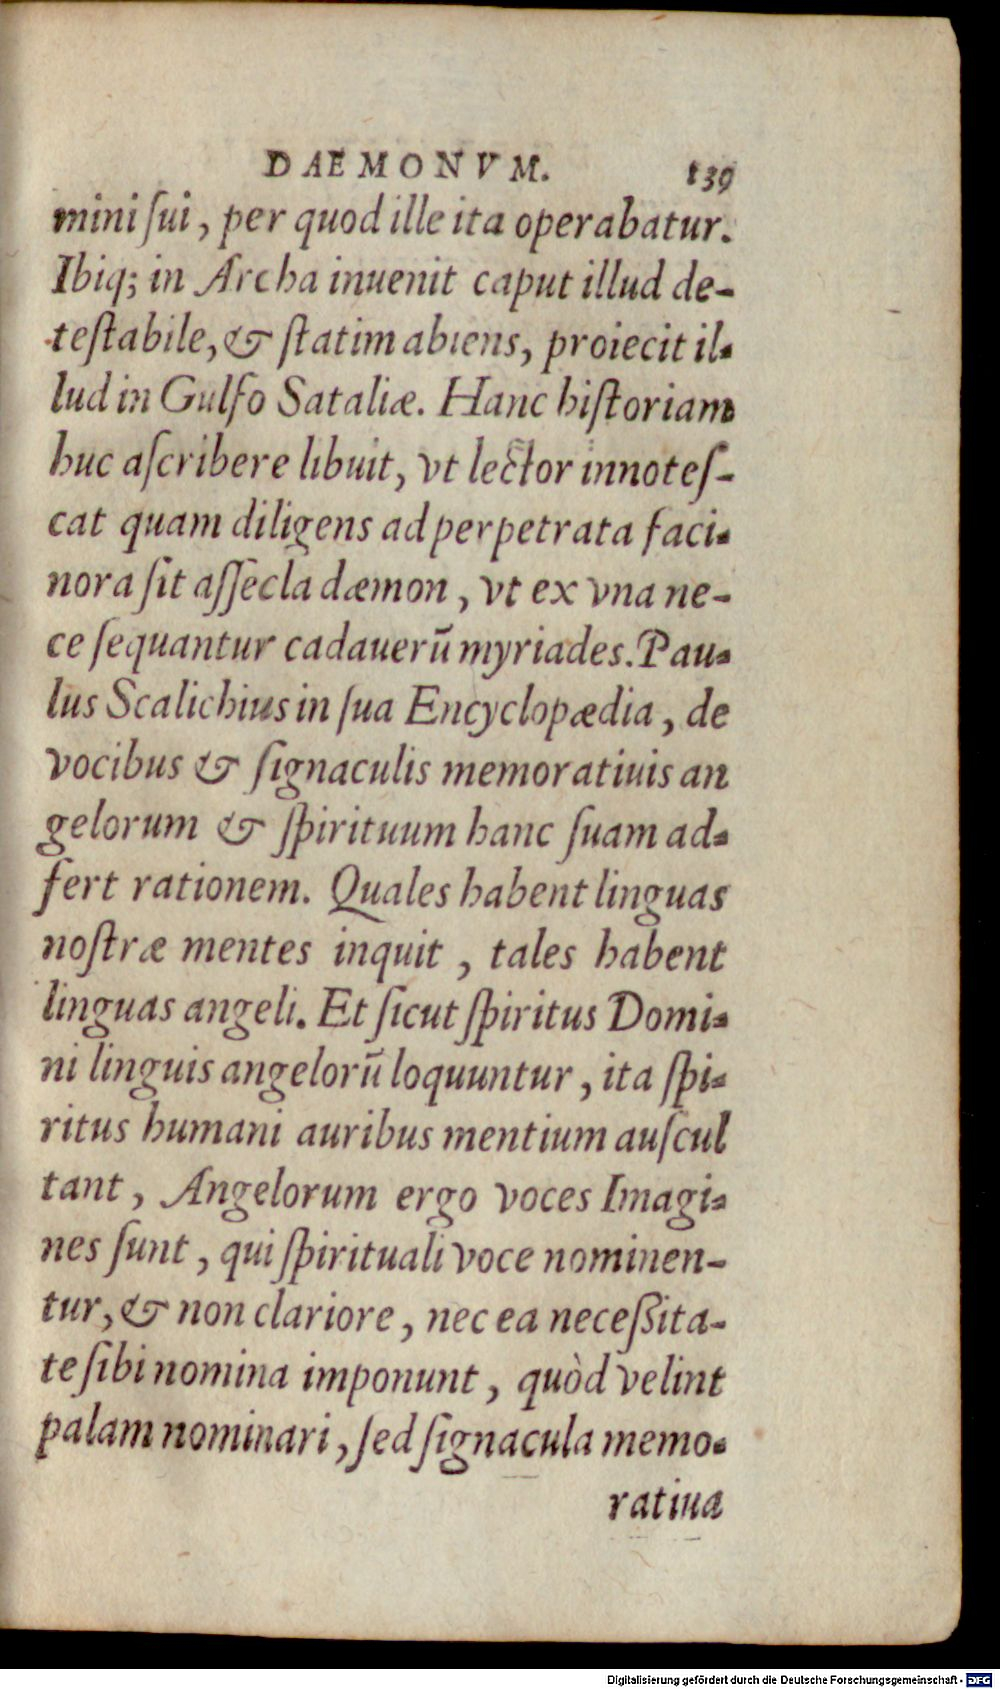 DAEMONVM. 139
mini ſui, per quod ille ita operabatur.
Ibiq; in Archa inuenit caput illud de-
teſtabile, & ſtatim abiens, proiecit il-
lud in Gulfo Sataliæ. Hanc hiſtoriam
huc aſcribere libuit, vt lector innoteſ-
cat quam diligens ad perpetrata faci-
nora ſit aſſecla dæmon, vt ex vna ne-
ce ſequantur cadauerū myriades. Pau-
lus Scalichius in ſua Encyclopædia, de
vocibus & ſignaculis memoratiuis an
gelorum & ſpirituum hanc ſuam ad-
fert rationem. Quales habent linguas
noſtræ mentes inquit, tales habent
linguas angeli. Et ſicut ſpiritus Domi-
ni linguis angelorū loquuntur, ita ſpi-
ritus humani auribus mentium auſcul
tant, Angelorum ergo voces Imagi-
nes ſunt, qui ſpirituali voce nominen-
tur, & non clariore, nec ea neceßita-
te ſibi nomina imponunt, quòd velint
palam nominari, ſed ſignacula memo-
ratiua
Digitalisierung gefördert durch die Deutsche Forschungsgemeinschaft - DFG